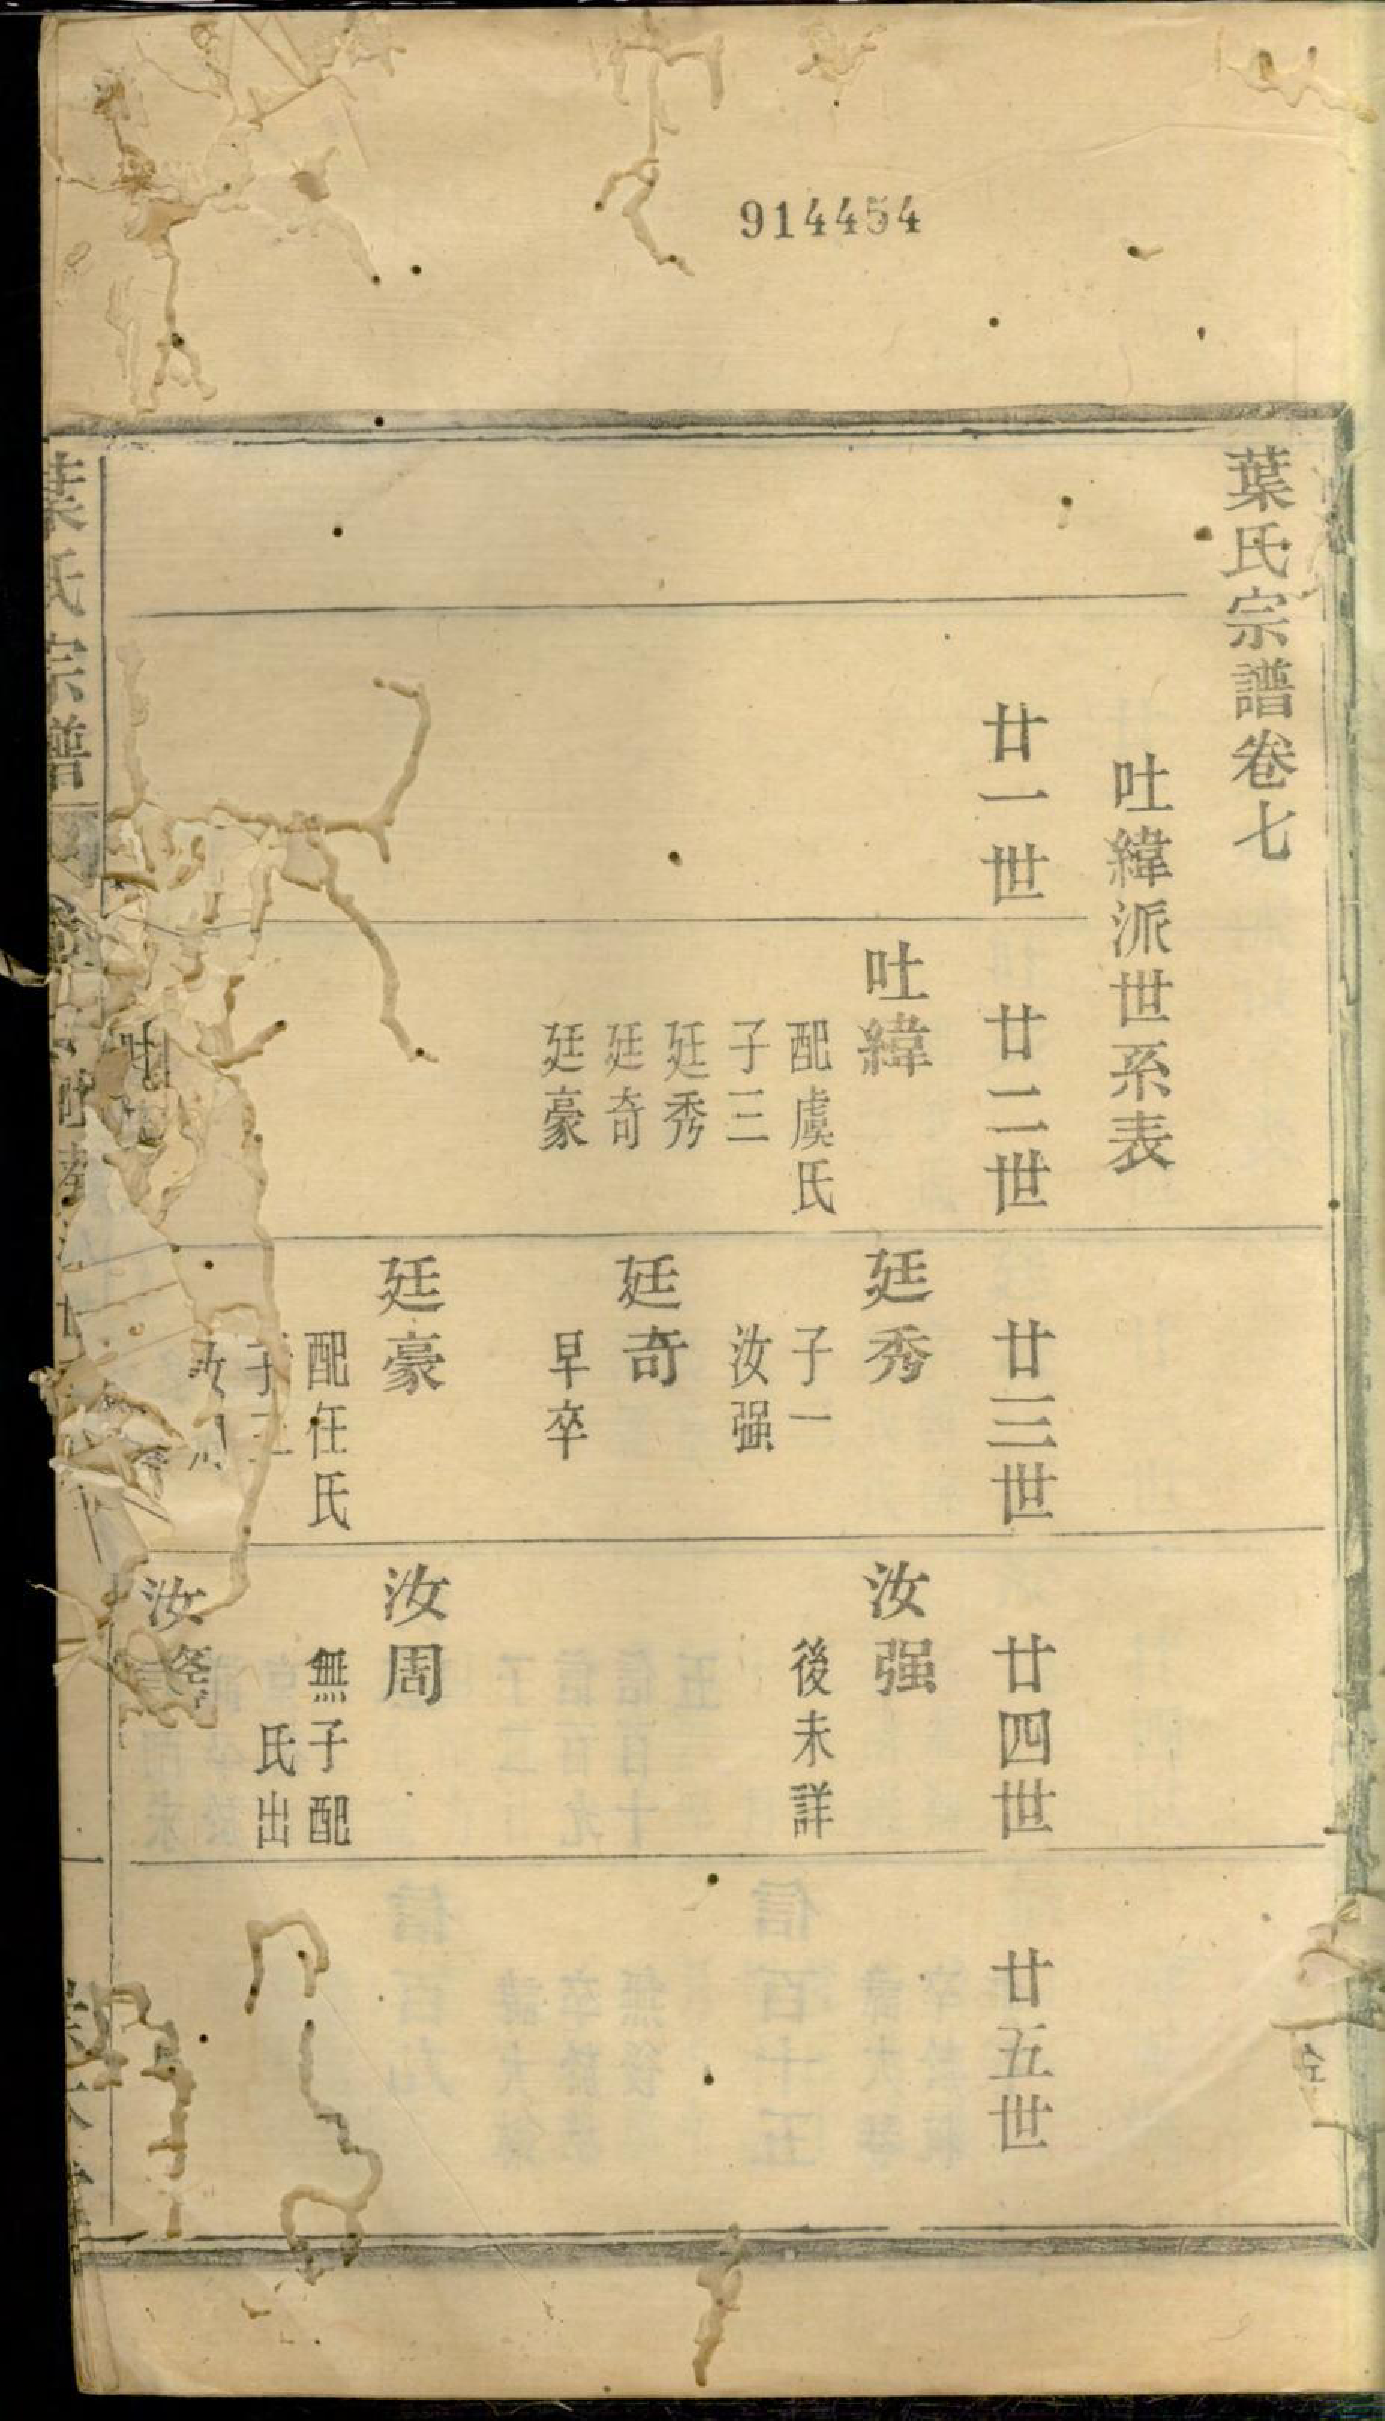 914454
葉氏宗譜卷七
吐緯派世系表
廿一世
廿二世
廿三世
廿四世
廿五世
吐緯
配虞氏
子三
廷秀
廷奇
廷豪
廷秀
子一
汝强
廷奇
早卒
廷豪
配任氏
汝强
後未詳
汝周
無子配
氏出
汝
葉氏宗譜